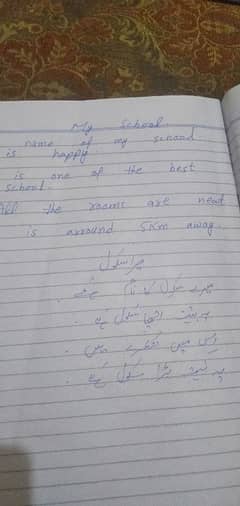 My School.
name of my school
is happy.
is one of the best
school.
All the rooms are neat
is arround 5km away.
میرا سکول
میرے سکول کا نام ہے
یہ بہت اچھا سکول ہے۔
اس میں کمرے ہیں۔
یہ بہت بڑا سکول ہے۔